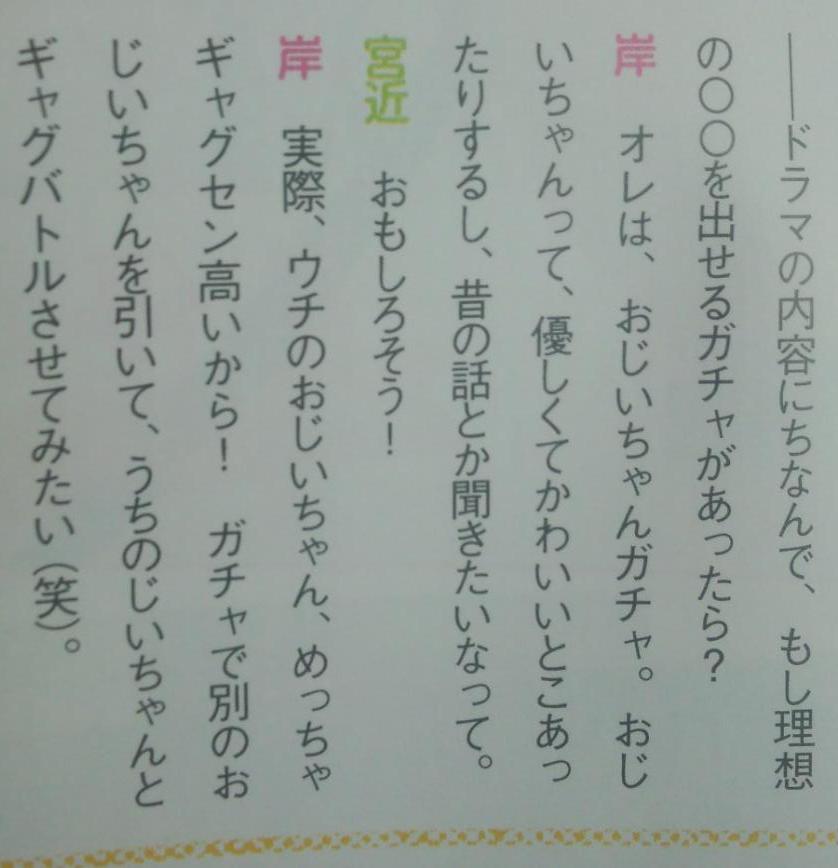 ――ドラマの内容にちなんで、もし理想
の〇〇を出せるガチャがあったら?
岸　オレは、おじいちゃんガチャ。おじ
いちゃんって、優しくてかわいいとこあっ
たりするし、昔の話とか聞きたいなって。
宮近　おもしろそう!
岸　実際、ウチのおじいちゃん、めっちゃ
ギャグセン高いから!　ガチャで別のお
じいちゃんを引いて、うちのじいちゃんと
ギャグバトルさせてみたい(笑)。